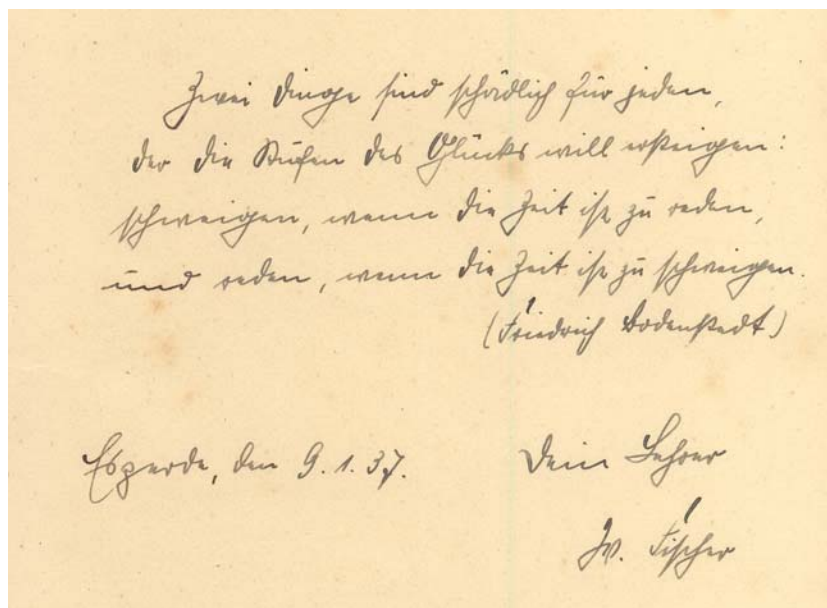 Zwei Dinge sind schädlich für jeden,
der die Stufen des Glücks will ersteigen:
schweigen, wenn die Zeit ist zu reden,
und reden, wenn die Zeit ist zu schweigen.
(Friedrich Bodenstedt)
Esperde, den 9. 1. 37. Dein Lehrer
W. Fischer